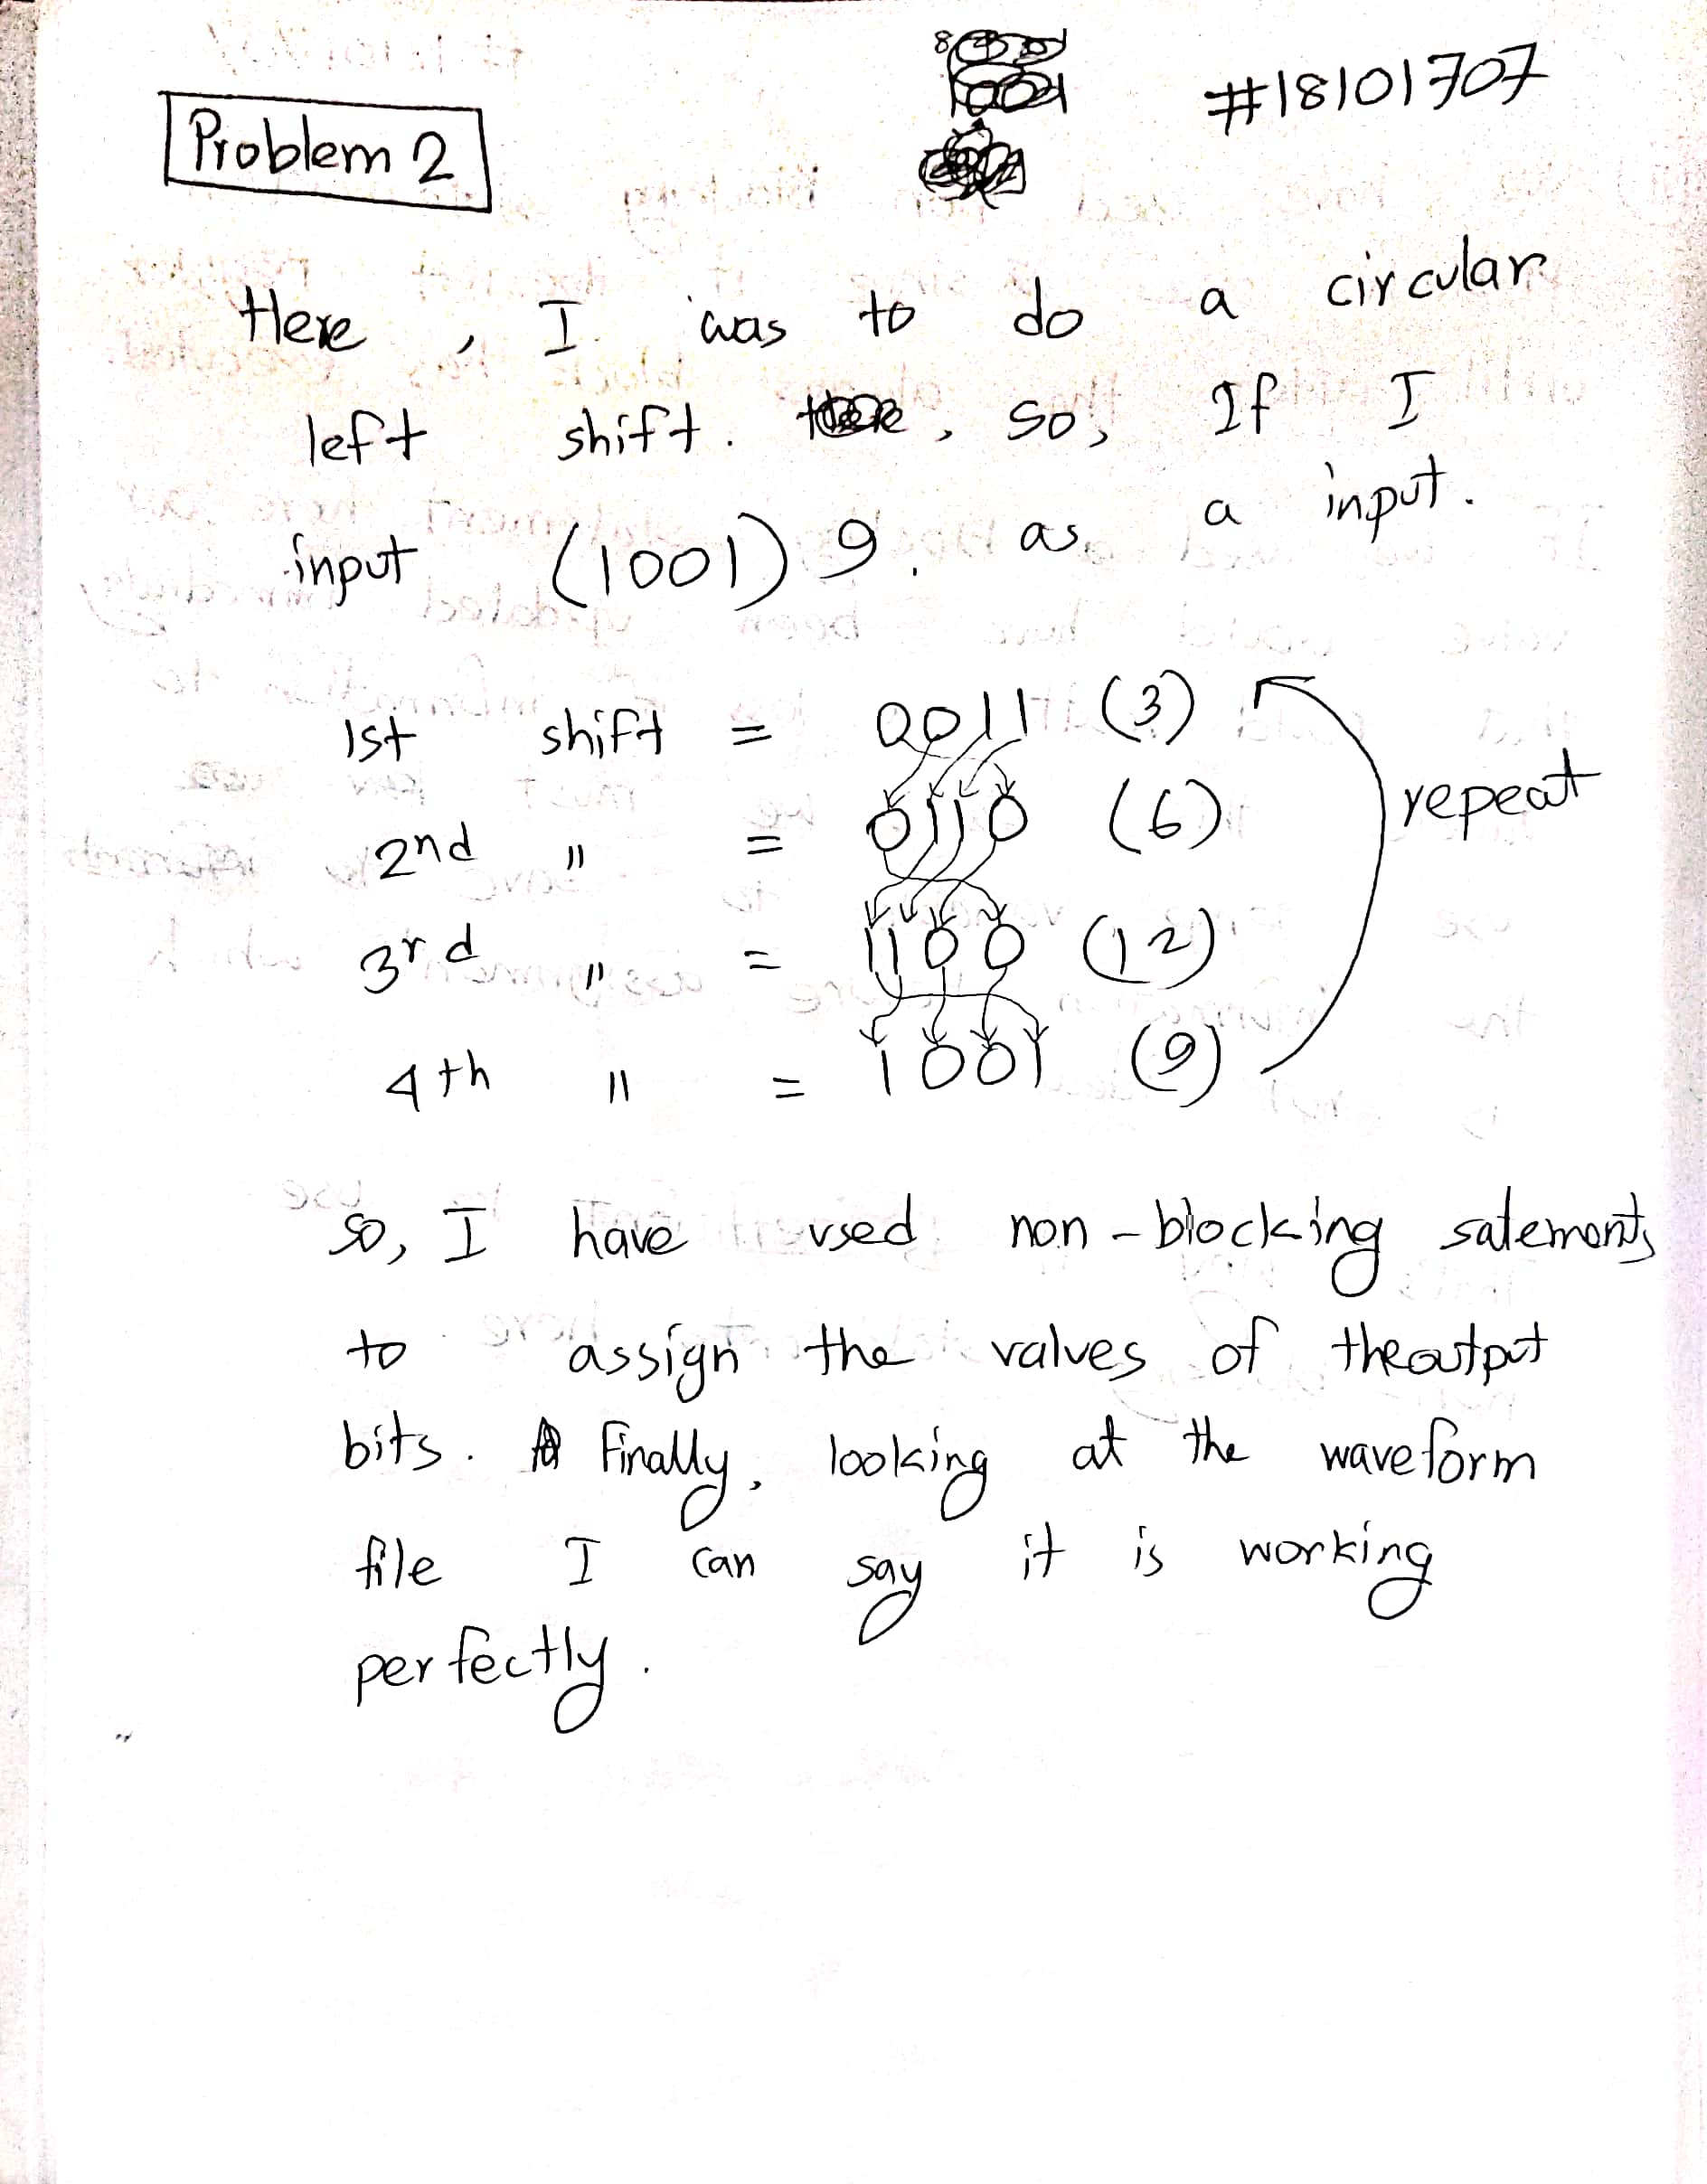 #18101707
Problem 2
Here, I was to do a circular
left shift. , so, If I
input (1001) 9. as a input.
1st shift = 0011 (3)
2nd " = 0110 (6) repeat
3rd " = 1100 (12)
4th " = 1001 (9)
so, I have used non-blocking satements
to assign the values of the output
bits. Finally, looking at the waveform
file I can say it is working
perfectly.